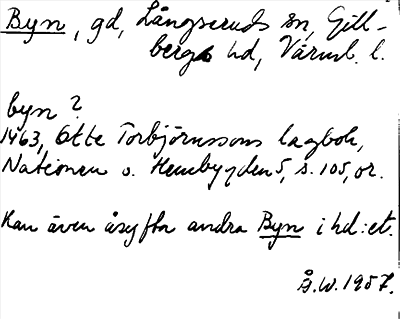 Byn, gd, Långseruds sn, Gill-
bergs hd, Värml. l.
byn ?
1463, Otte Torbjörnssons lagbok,
Nationen o. Hembygden 5, s. 105, or.
Kan även åsyfta andra Byn i hd:et.
Å.W. 1957.